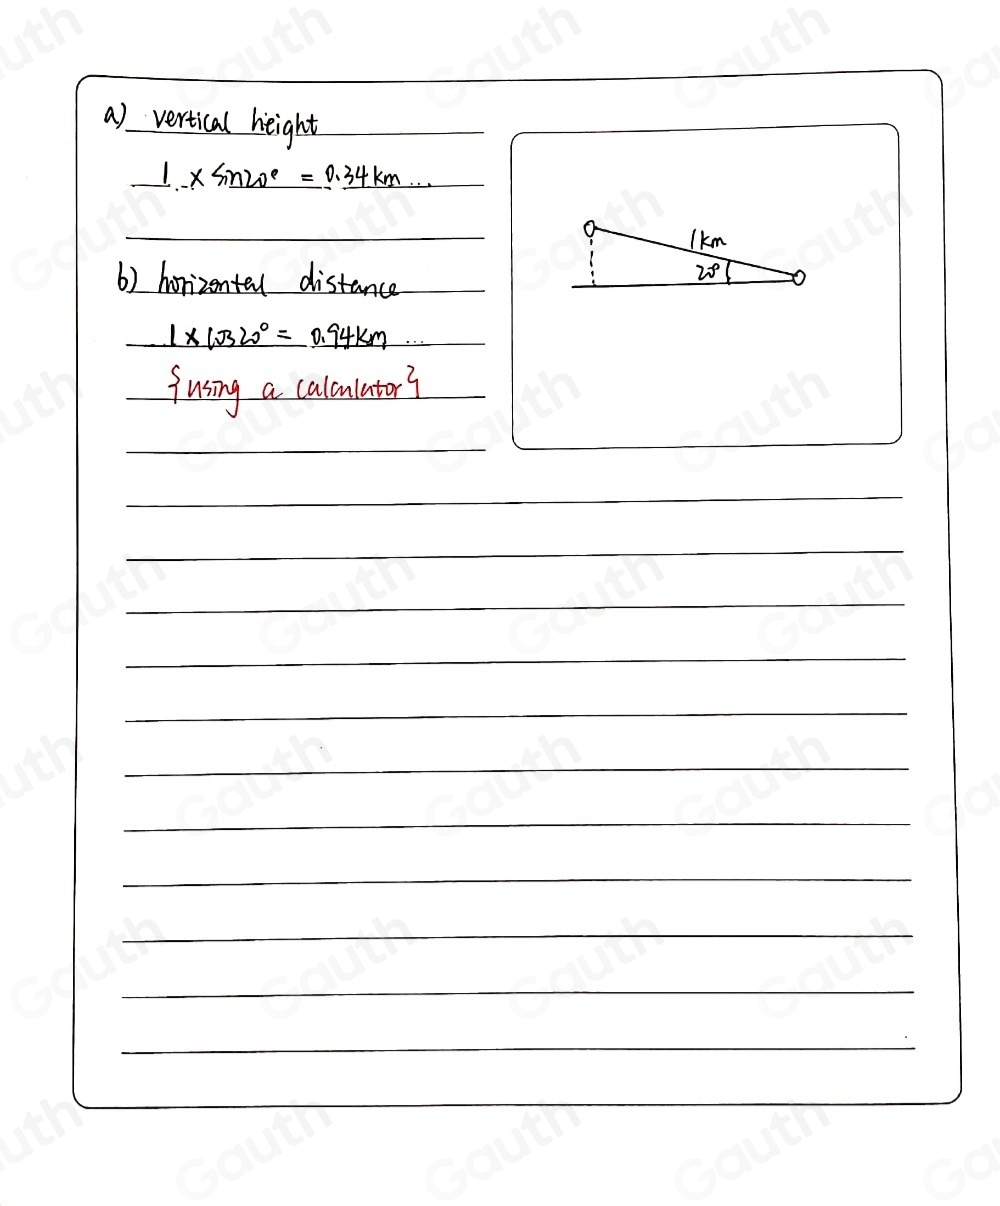 a) vertical height
1 × sin20° = 0.34km...
b) horizontal distance
1 × cos20° = 0.94km ...
{using a calculator}
1km
20°
Gauth